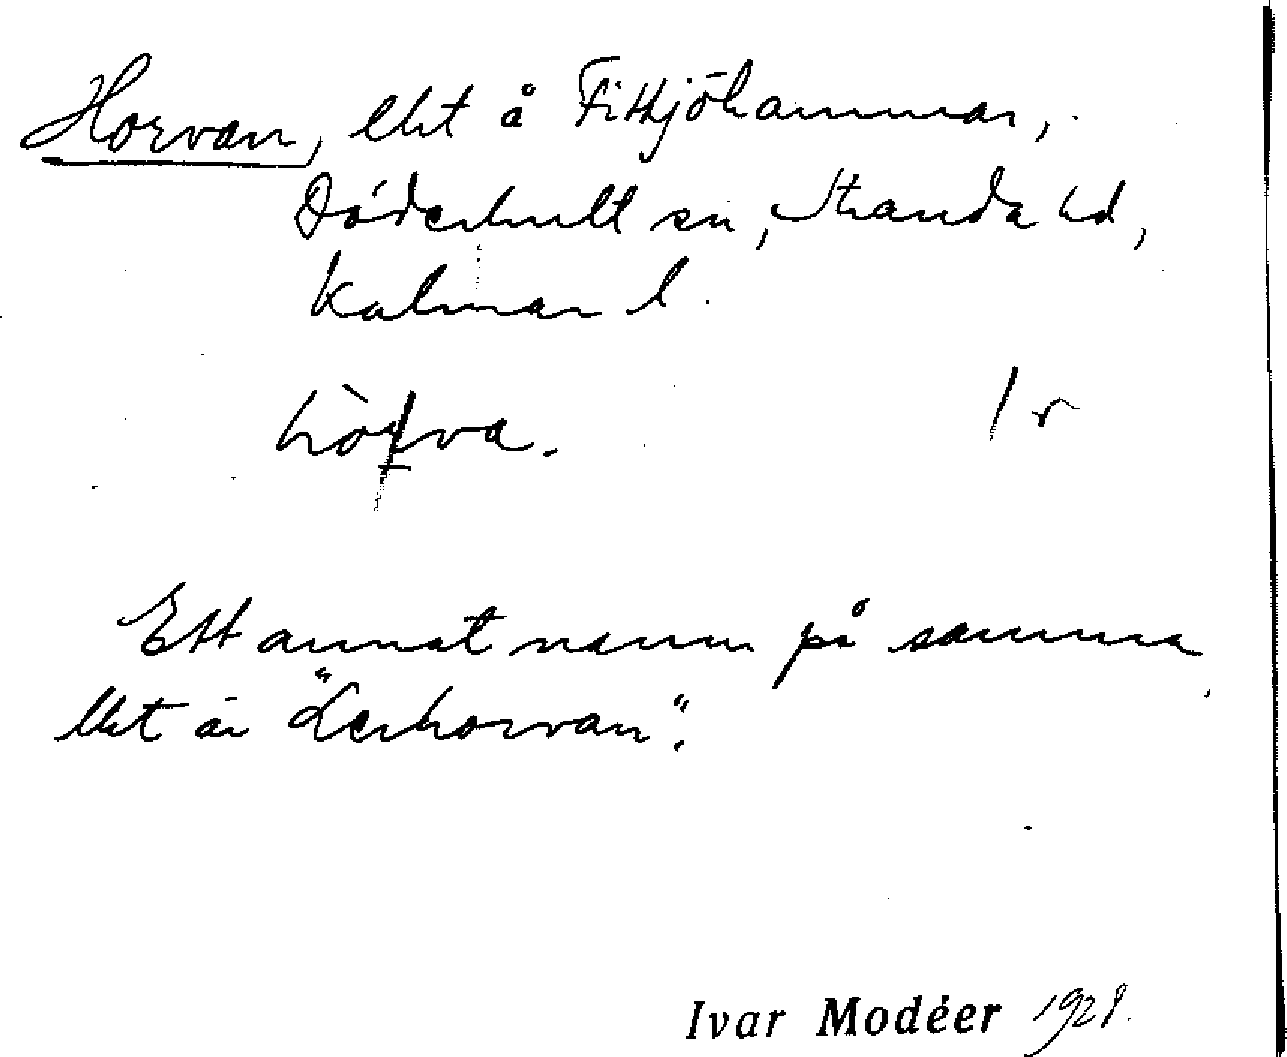 Horvan, litet å Fittjöhammar,
Döderhult sn, Stranda hd,
Kalmar l.
hòrva. / r
Ett annat namn på samma
litet är "Lerhorvan".
Ivar Modéer 1929.